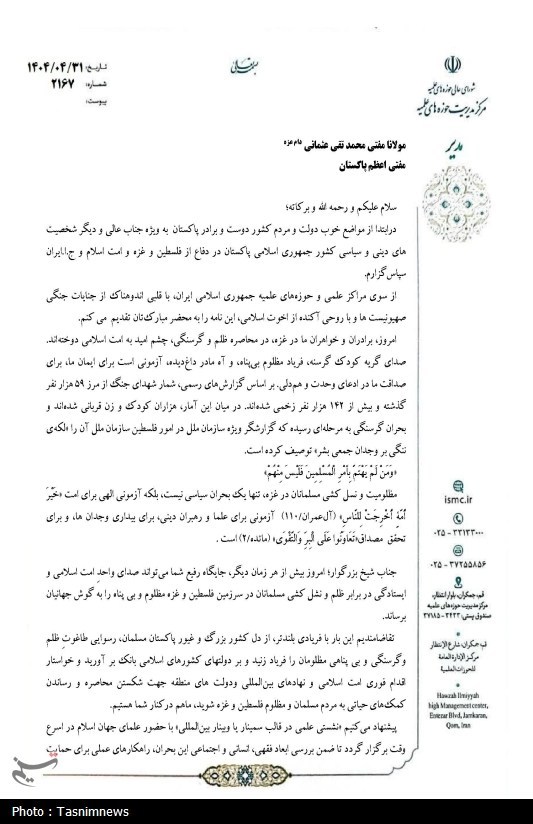 تاریخ: ۱۴۰۴/۰۴/۳۱
شماره: ۲۱۶۷
پیوست:
شورای عالی حوزه های علمیه
مرکز مدیریت حوزه های علمیه
مدیر
مولانا مفتی محمد تقی عثمانی دام عزه
مفتی اعظم پاکستان
سلام علیکم و رحمه الله و برکاته؛
درابتدا از مواضع خوب دولت و مردم کشور دوست و برادر پاکستان به ویژه جناب عالی و دیگر شخصیت
های دینی و سیاسی کشور جمهوری اسلامی پاکستان در دفاع از فلسطین و غزه و امت اسلام و ج.ا.ایران
سپاس‌گزارم.
از سوی مراکز علمی و حوزه‌های علمیه جمهوری اسلامی ایران، با قلبی اندوهناک از جنایات جنگی
صهیونیست ها و با روحی آکنده از اخوت اسلامی، این نامه را به محضر مبارک‌تان تقدیم می کنم.
امروز، برادران و خواهران ما در غزه، در محاصره ظلم و گرسنگی، چشم امید به امت اسلامی دوخته‌اند.
صدای گریه کودک گرسنه، فریاد مظلوم بی‌پناه، و آه مادر داغ‌دیده، آزمونی است برای ایمان ما، برای
صداقت ما در ادعای وحدت و هم‌دلی. بر اساس گزارش‌های رسمی، شمار شهدای جنگ از مرز ۵۹ هزار نفر
گذشته و بیش از ۱۴۲ هزار نفر زخمی شده‌اند. در میان این آمار، هزاران کودک و زن قربانی شده‌اند و
بحران گرسنگی به مرحله‌ای رسیده که گزارشگر ویژه سازمان ملل در امور فلسطین سازمان ملل آن را «لکه‌ی
ننگی بر وجدان جمعی بشر» توصیف کرده است.
«وَمَنْ لَمْ يَهْتَمَّ بِأَمْرِ الْمُسْلِمِينَ فَلَيْسَ مِنْهُمْ»
مظلومیت و نسل کشی مسلمانان در غزه، تنها یک بحران سیاسی نیست، بلکه آزمونی الهی برای امت «خَيْرَ
أُمَّةٍ أُخْرِجَتْ لِلنَّاسِ» (آل‌عمران/۱۱۰) آزمونی برای علما و رهبران دینی، برای بیداری وجدان ها، و برای
تحقق مصداق«تَعَاوَنُوا عَلَى الْبِرِّ وَالتَّقْوَى» (مائده/۲) است .
جناب شیخ بزرگوار؛ امروز بیش از هر زمان دیگر، جایگاه رفیع شما می‌تواند صدای واحد امت اسلامی و
ایستادگی در برابر ظلم و نشل کشی مسلمانان در سرزمین فلسطین و غزه مظلوم و بی پناه را به گوش جهانیان
برساند.
تقاضامندیم این بار با فریادی بلندتر، از دل کشور بزرگ و غیور پاکستان مسلمان، رسوایی طاغوتِ ظلم
وگرسنگی و بی پناهی مظلومان را فریاد زنید و بر دولتهای کشورهای اسلامی بانک بر آورید و خواستار
اقدام فوری امت اسلامی و نهادهای بین‌المللی ودولت های منطقه جهت شکستن محاصره و رساندن
کمک‌های حیاتی به مردم مسلمان و مظلوم فلسطین و غزه شوید، ماهم درکنار شما هستیم.
پیشنهاد می‌کنیم «نشستی علمی در قالب سمینار یا وبینار بین‌المللی» با حضور علمای جهان اسلام در اسرع
وقت برگزار گردد تا ضمن بررسی ابعاد فقهی، انسانی و اجتماعی این بحران، راهکارهای عملی برای حمایت
ismc.ir
۰۲۵ - ۳۲۱۳۳۰۰۰
۰۲۵ - ۳۷۲۵۵۸۵۶
قم، جمکران، بلوار انتظار،
مرکز مدیریت حوزه های علمیه
صندوق پستی: ۳۴۳۳ - ۳۷۱۸۵
قم، جمکران، شارع الانتظار
مرکز الإدارة العامة
للحوزات العلمیة
Hawzah Ilmiyyah
high Management center,
Entezar Blvd, Jamkaran,
Qom, Iran
تسنیم
Photo : Tasnimnews